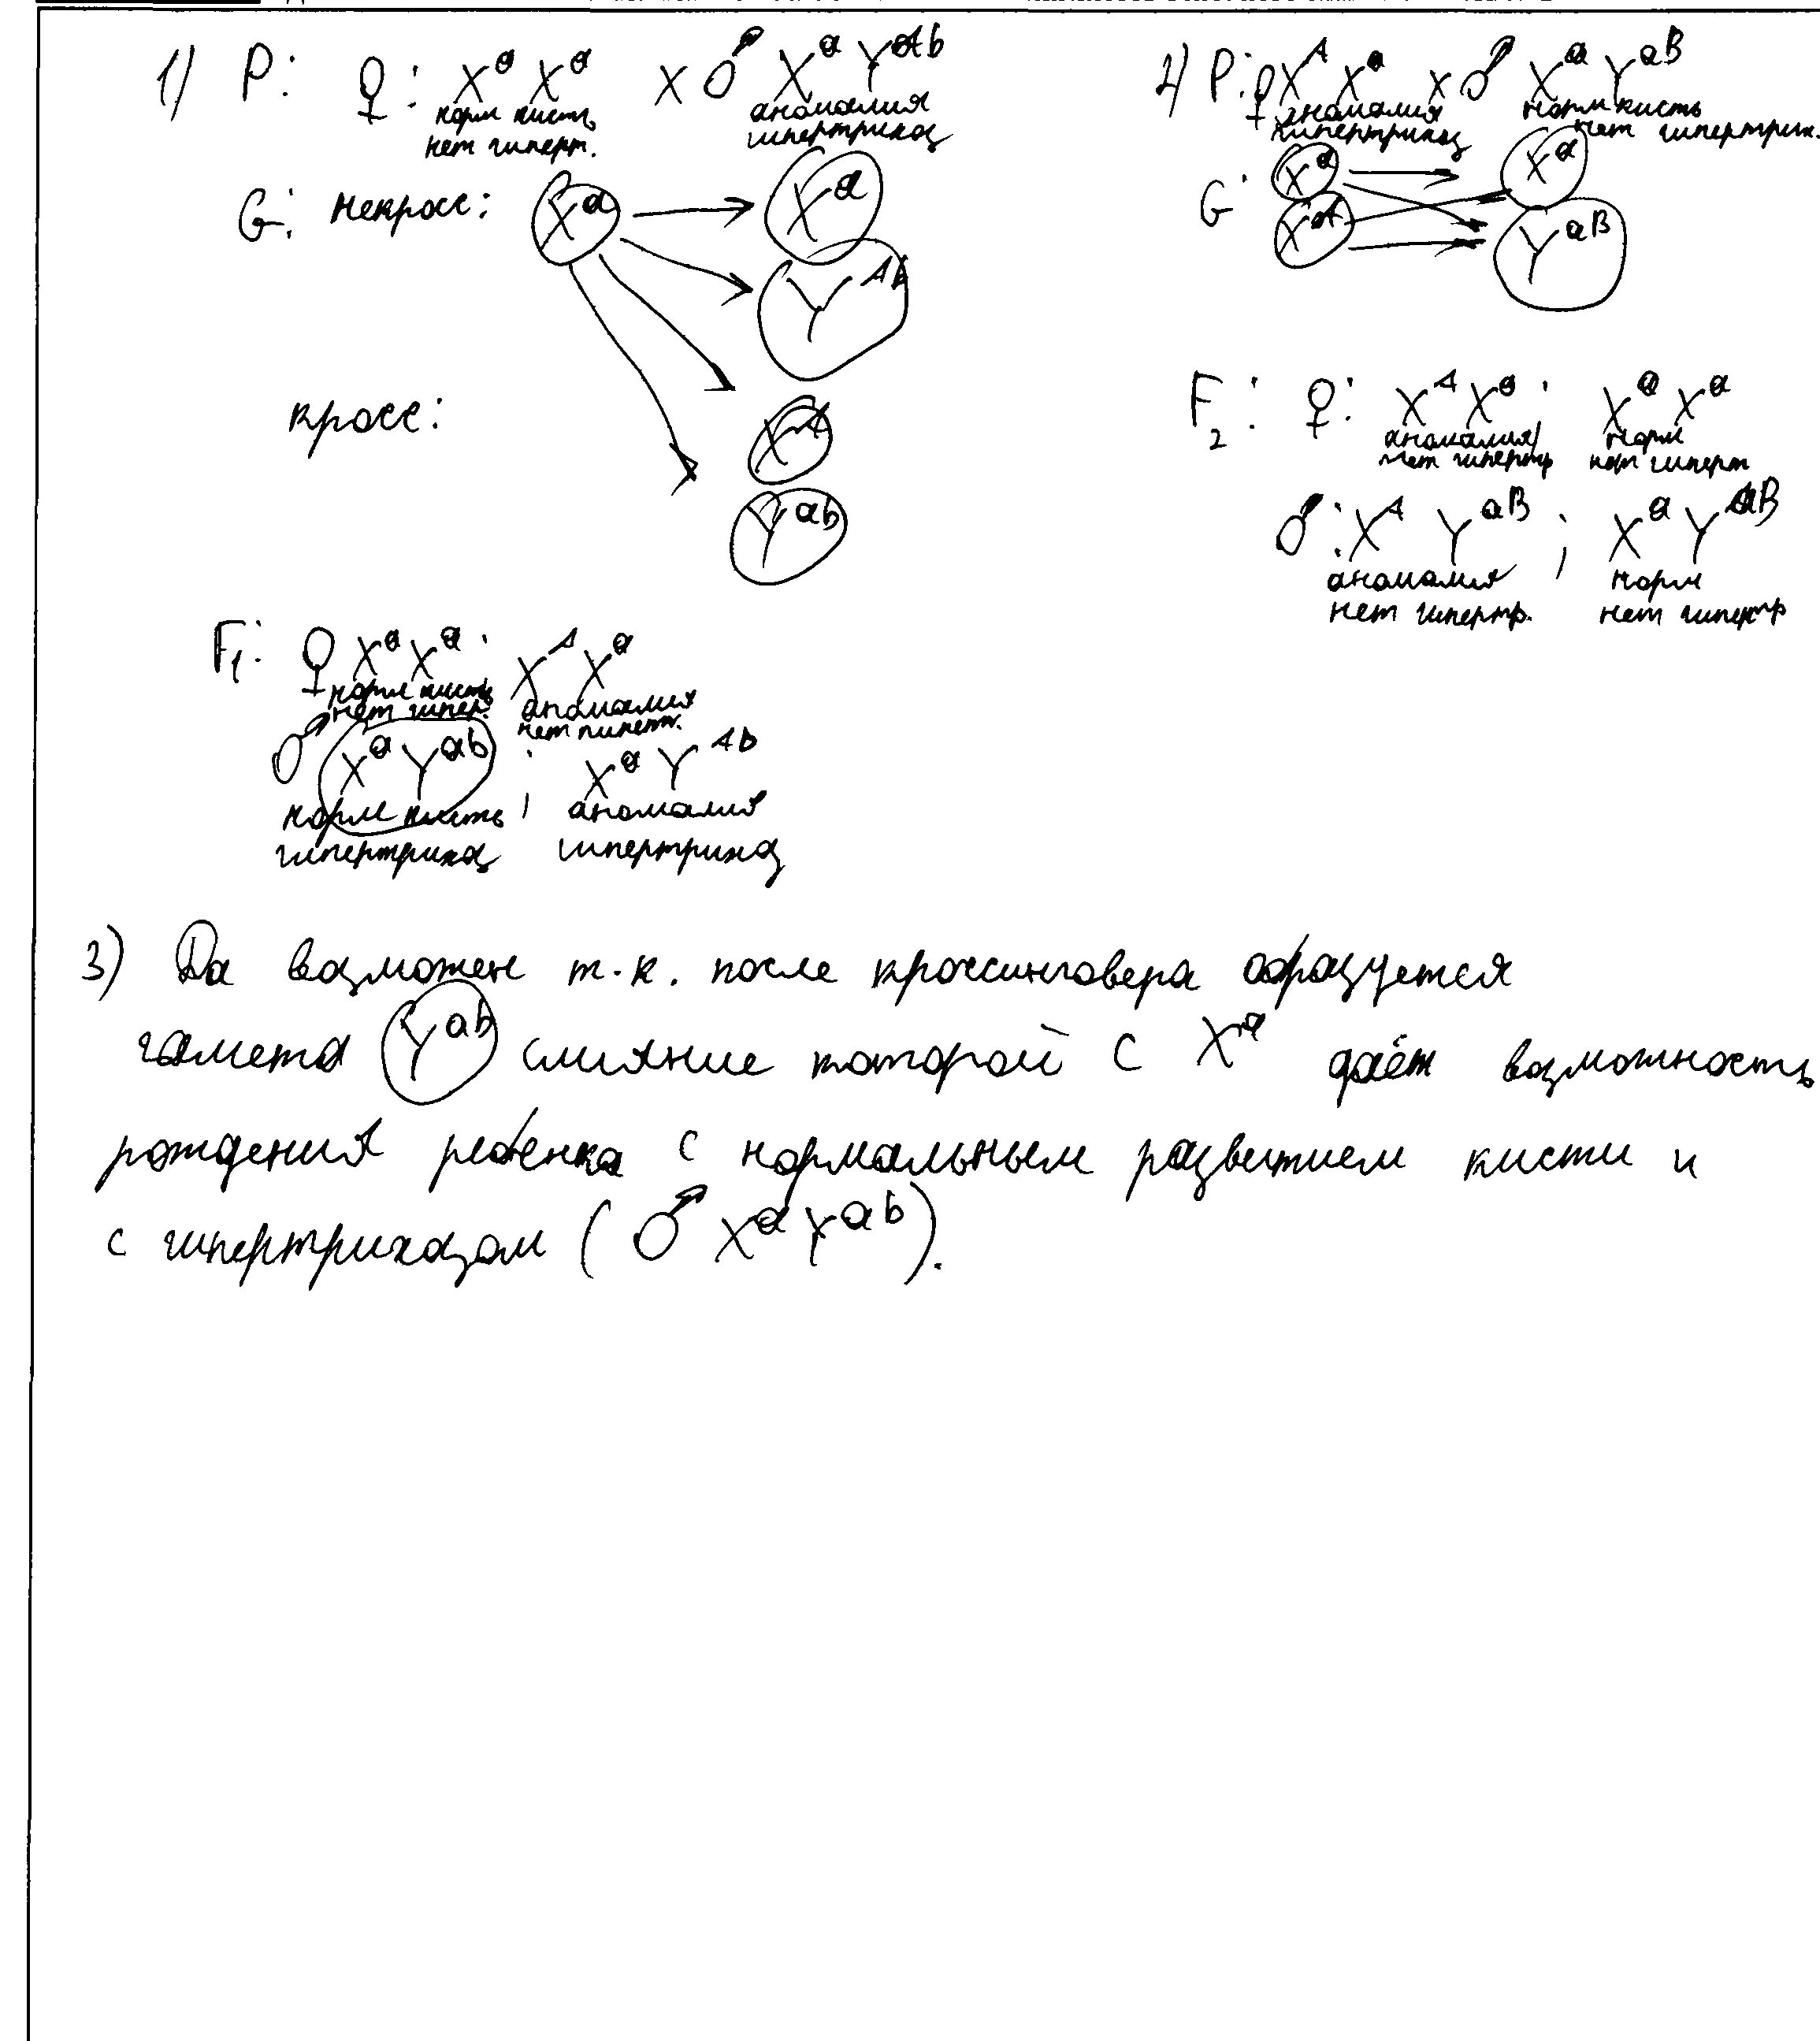 1) P: ♀: XᵃXᵃ x ♂ XᵃYᴬᵇ
норм кисть аномалия
нет гиперт. гипертрихоз
G: некросс: Xᵃ Xᵃ
Yᴬᵇ
кросс: Xᴬ
Yᵃᵇ
F₁: ♀ XᵃXᵃ; XᴬXᵃ
норм кисть аномалия
нет гипер.
♂ XᵃYᵃᵇ; XᵃYᴬᵇ
норм кисть; аномалия
гипертрихоз гипертрихоз
2) P: ♀ XᴬXᵃ x ♂ XᵃYᵃᴮ
аномалия норм кисть
гипертрихоз нет гипертрих.
G: Xᵃ Xᵃ
Xᴬ Yᵃᴮ
F₂: ♀: XᴬXᵃ; XᵃXᵃ
аномалия норм
нет гипертр гиперт
♂: XᴬYᵃᴮ; XᵃYᵃᴮ
аномалия ; норм
нет гипертр. нет гипертр
3) Да возможен т.к. после кроссинговера образуется
гамета Yᵃᵇ слияние которой с Xᵃ даёт возможность
рождения ребенка с нормальным развитием кисти и
с гипертрихозом (♂ XᵃYᵃᵇ).